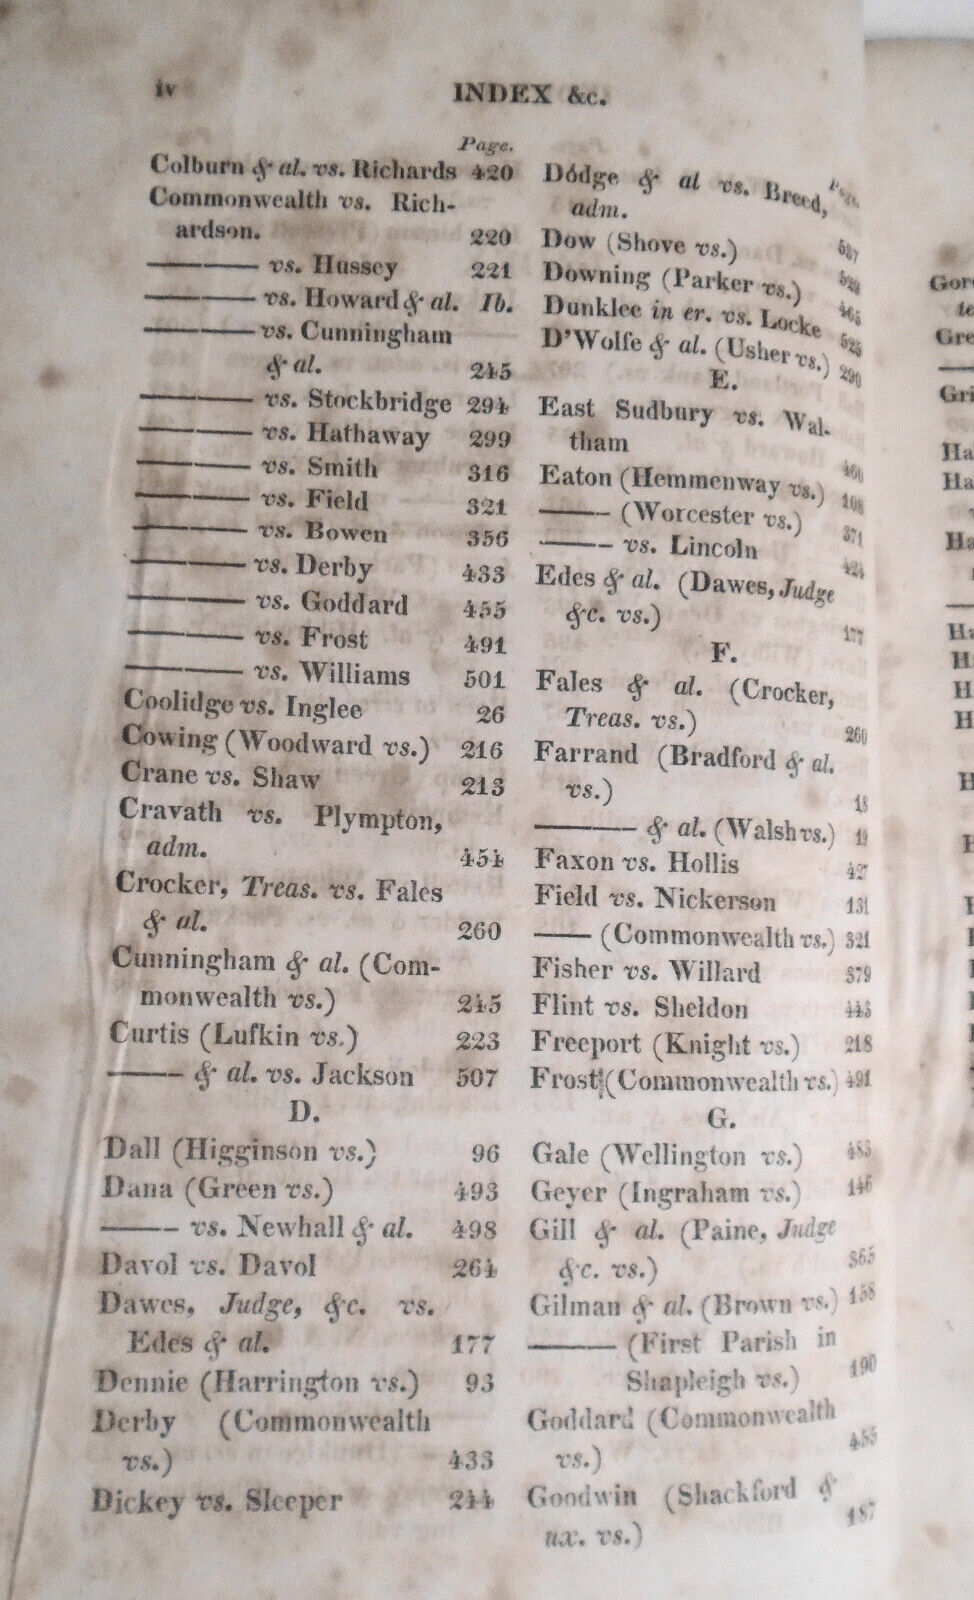 iv
INDEX &c.
Page.
Colburn & al. vs. Richards 420
Commonwealth vs. Rich-
ardson. 220
——— vs. Hussey 221
——— vs. Howard & al. Ib.
——— vs. Cunningham
& al. 245
——— vs. Stockbridge 294
——— vs. Hathaway 299
——— vs. Smith 316
——— vs. Field 321
——— vs. Bowen 356
——— vs. Derby 433
——— vs. Goddard 455
——— vs. Frost 491
——— vs. Williams 501
Coolidge vs. Inglee 26
Cowing (Woodward vs.) 216
Crane vs. Shaw 213
Cravath vs. Plympton,
adm. 454
Crocker, Treas. vs. Fales
& al. 260
Cunningham & al. (Com-
monwealth vs.) 245
Curtis (Lufkin vs.) 223
——— & al. vs. Jackson 507
D.
Dall (Higginson vs.) 96
Dana (Green vs.) 493
——— vs. Newhall & al. 498
Davol vs. Davol 264
Dawes, Judge, &c. vs.
Edes & al. 177
Dennie (Harrington vs.) 93
Derby (Commonwealth
vs.) 433
Dickey vs. Sleeper 244
Page.
Dodge & al vs. Breed,
adm. 537
Dow (Shove vs.) 529
Downing (Parker vs.) 465
Dunklee in er. vs. Locke 525
D'Wolfe & al. (Usher vs.) 290
E.
East Sudbury vs. Wal-
tham 460
Eaton (Hemmenway vs.) 108
——— (Worcester vs.) 371
——— vs. Lincoln 424
Edes & al. (Dawes, Judge
&c. vs.) 177
F.
Fales & al. (Crocker,
Treas. vs.) 260
Farrand (Bradford & al.
vs.) 18
——— & al. (Walsh vs.)
Faxon vs. Hollis 427
Field vs. Nickerson 131
——— (Commonwealth vs.) 321
Fisher vs. Willard 379
Flint vs. Sheldon 443
Freeport (Knight vs.) 218
Frost (Commonwealth vs.) 491
G.
Gale (Wellington vs.) 483
Geyer (Ingraham vs.) 146
Gill & al. (Paine, Judge
&c. vs.) 365
Gilman & al. (Brown vs.) 158
——— (First Parish in
Shapleigh vs.) 190
Goddard (Commonwealth
vs.) 455
Goodwin (Shackford &
ux. vs.) 187
Gor
te
Gre
Gri
Ha
Ha
Ha
Ha
H
H
H
H
H